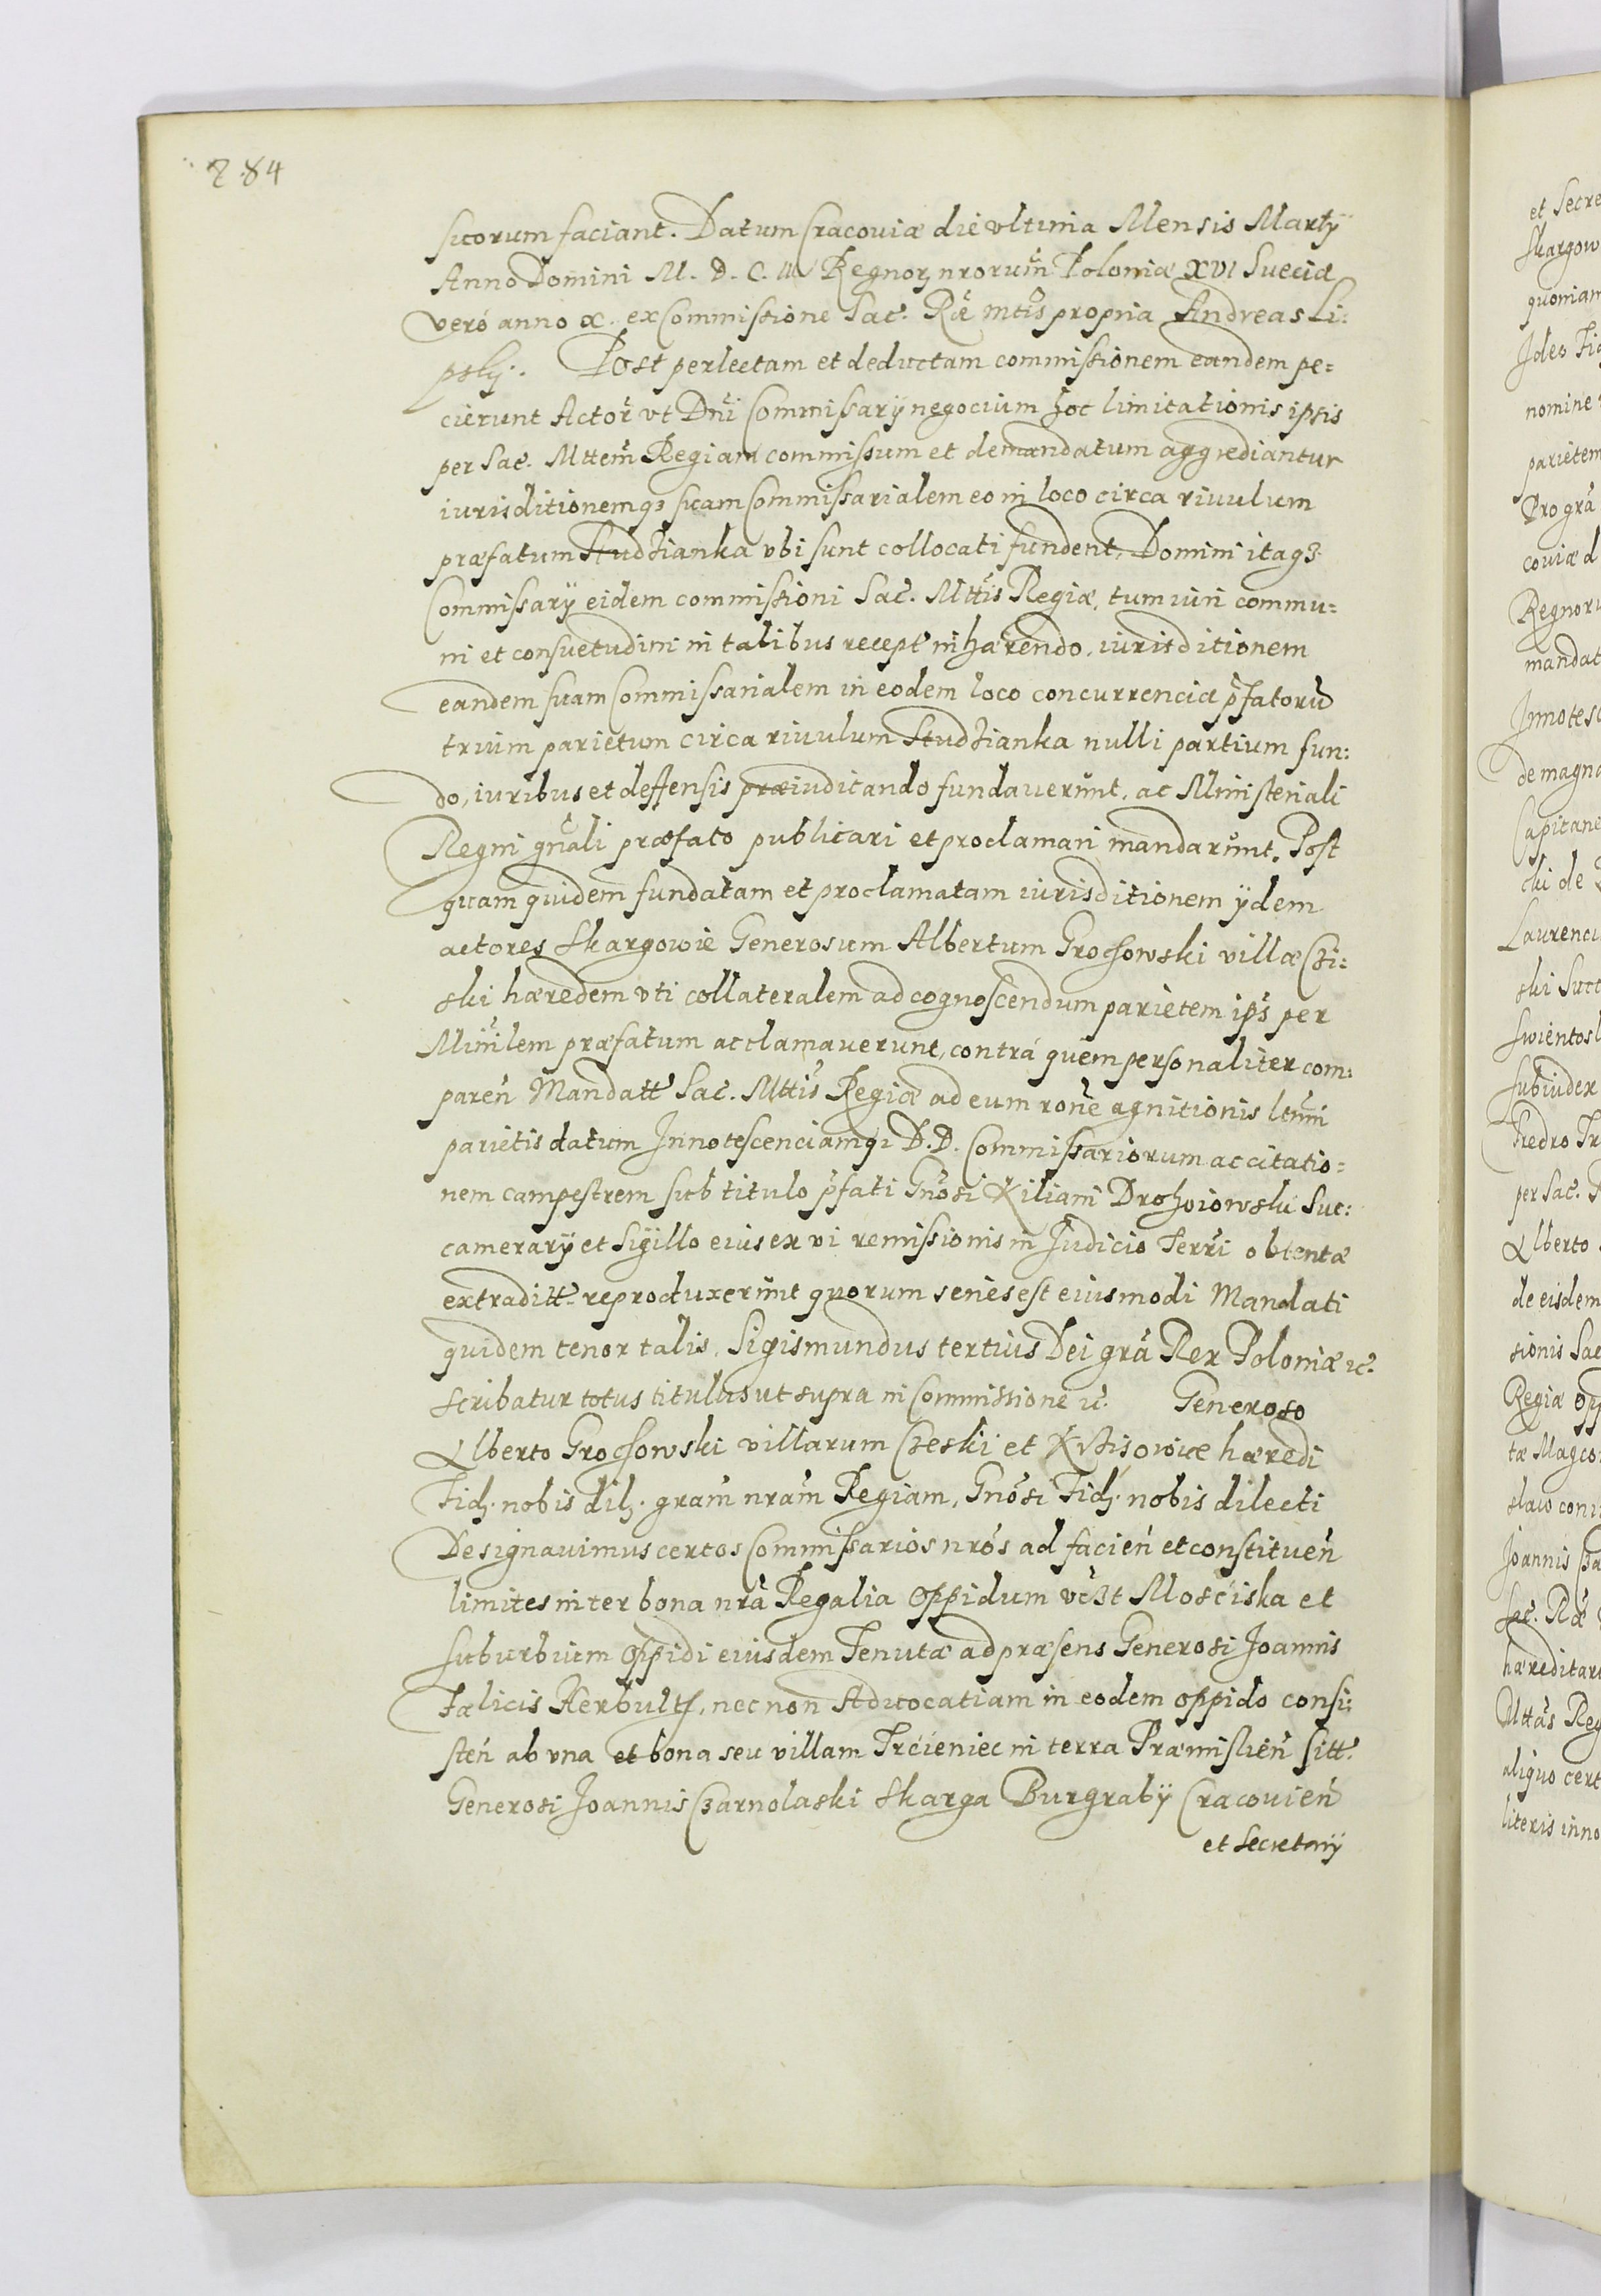 284
suorum faciant. Datum Cracouiæ die vltima Mensis Martÿ
Anno Domini M. D. C. III Regnoꝝ nrorum̃ Poloniæ XVI Sueciæ
vero anno X. ex Commissione Sac. Ræ mtis propria Andreas Li:
pskj. Post perlectam et deductam commissionem eandem pe=
cierunt Actor̃ vt Dn̄i Commissarÿ negocium hoc limitationis ipsis
per Sac. Mttem̃ Regiam commissum et demandatum aggrediantur
iurisditionemqȝ suam Commissarialem eo in loco circa riuulum
præfatum Studzianka vbi sunt collocati fundent, Domini itaqȝ
Commissarÿ eidem commissioni Sac. Mttis Regiæ, tum iuri commu=
ni et consuetudini in talibus recept inhærendo, iurisditionem
eandem suam Commissarialem in eodem loco concurrenciæ p̄fatorũ
trium parietum circa riuulum Studzianka nulli partium fun:
do, iuribus et deffensis præiudicando fundauerunt, ac Ministeriali
Regni gn̄ali præfato publicari et proclamari mandarunt. Post
quam quidem fundatam et proclamatam iurisditionem ÿdem
actores Skargowie Generosum Albertum Grochowski villæ Czi:
ski hæredem vti collateralem ad cognoscendum parietem ips per
Minilem præfatum acclamauerunt, contrá quem personaliter com:
paren̄ Mandatt Sac. Mttis Regiæ ad eum rone agnitionis ltimi
parietis datum Innotescenciamqȝ D.D. Commissariorum ac citatio=
nem campestrem sub titulo p̄fati Gnosi Kiliani Drohoiowski Suc:
camerarÿ et Sigillo eius ex vi remissionis in Iudicio Terri obtentæ
extraditt reproduxerunt quorum series est eiusmodi Mandati
quidem tenor talis, Sigismundus tertius Dei grã Rex Poloniæ ꝛc.
scribatur totus titulus ut supra in Commissione ꝛc. Generoso
Alberto Grochowski villarum Czeski et Krzisowice hæredi
Fidꝫ nobis dilꝫ. gram̃ nram̃ Regiam, Gnosi Fidꝫ nobis dilecti
Designauimus certos Commissarios nros ad facien̄ et constituen̄
limites inter bona nrã Regalia oppidum vczt Mosciska et
suburbium oppidi eiusdem Tenutæ ad præsens Generosi Joannis
Fælicis Herbultt, nec non Aduocatiam in eodem oppido consi:
sten̄ ab vna et bona seu villam Trcieniec in terra Præmislien̄ sitt.
Generosi Joannis Czarnolaski Skarga Burgrabÿ Cracouien̄
et Secretarÿ
et Secre
Skargow
quoniam
nomine
parietem
Pro grã
couiæ d
Regnoru
mandat
Innotesc
de magna
Capitane
ski de
Laurenci
ski Succ
Swientosl
subiudex
Fredro
per Sac.
Alberto
de eisdem
sionis Sac
Regiæ opp
tæ Magco
slaio con
Joannis Cza
Sac. Ræ
hæreditar
Mttas Reg
aliquo cert
literis inno